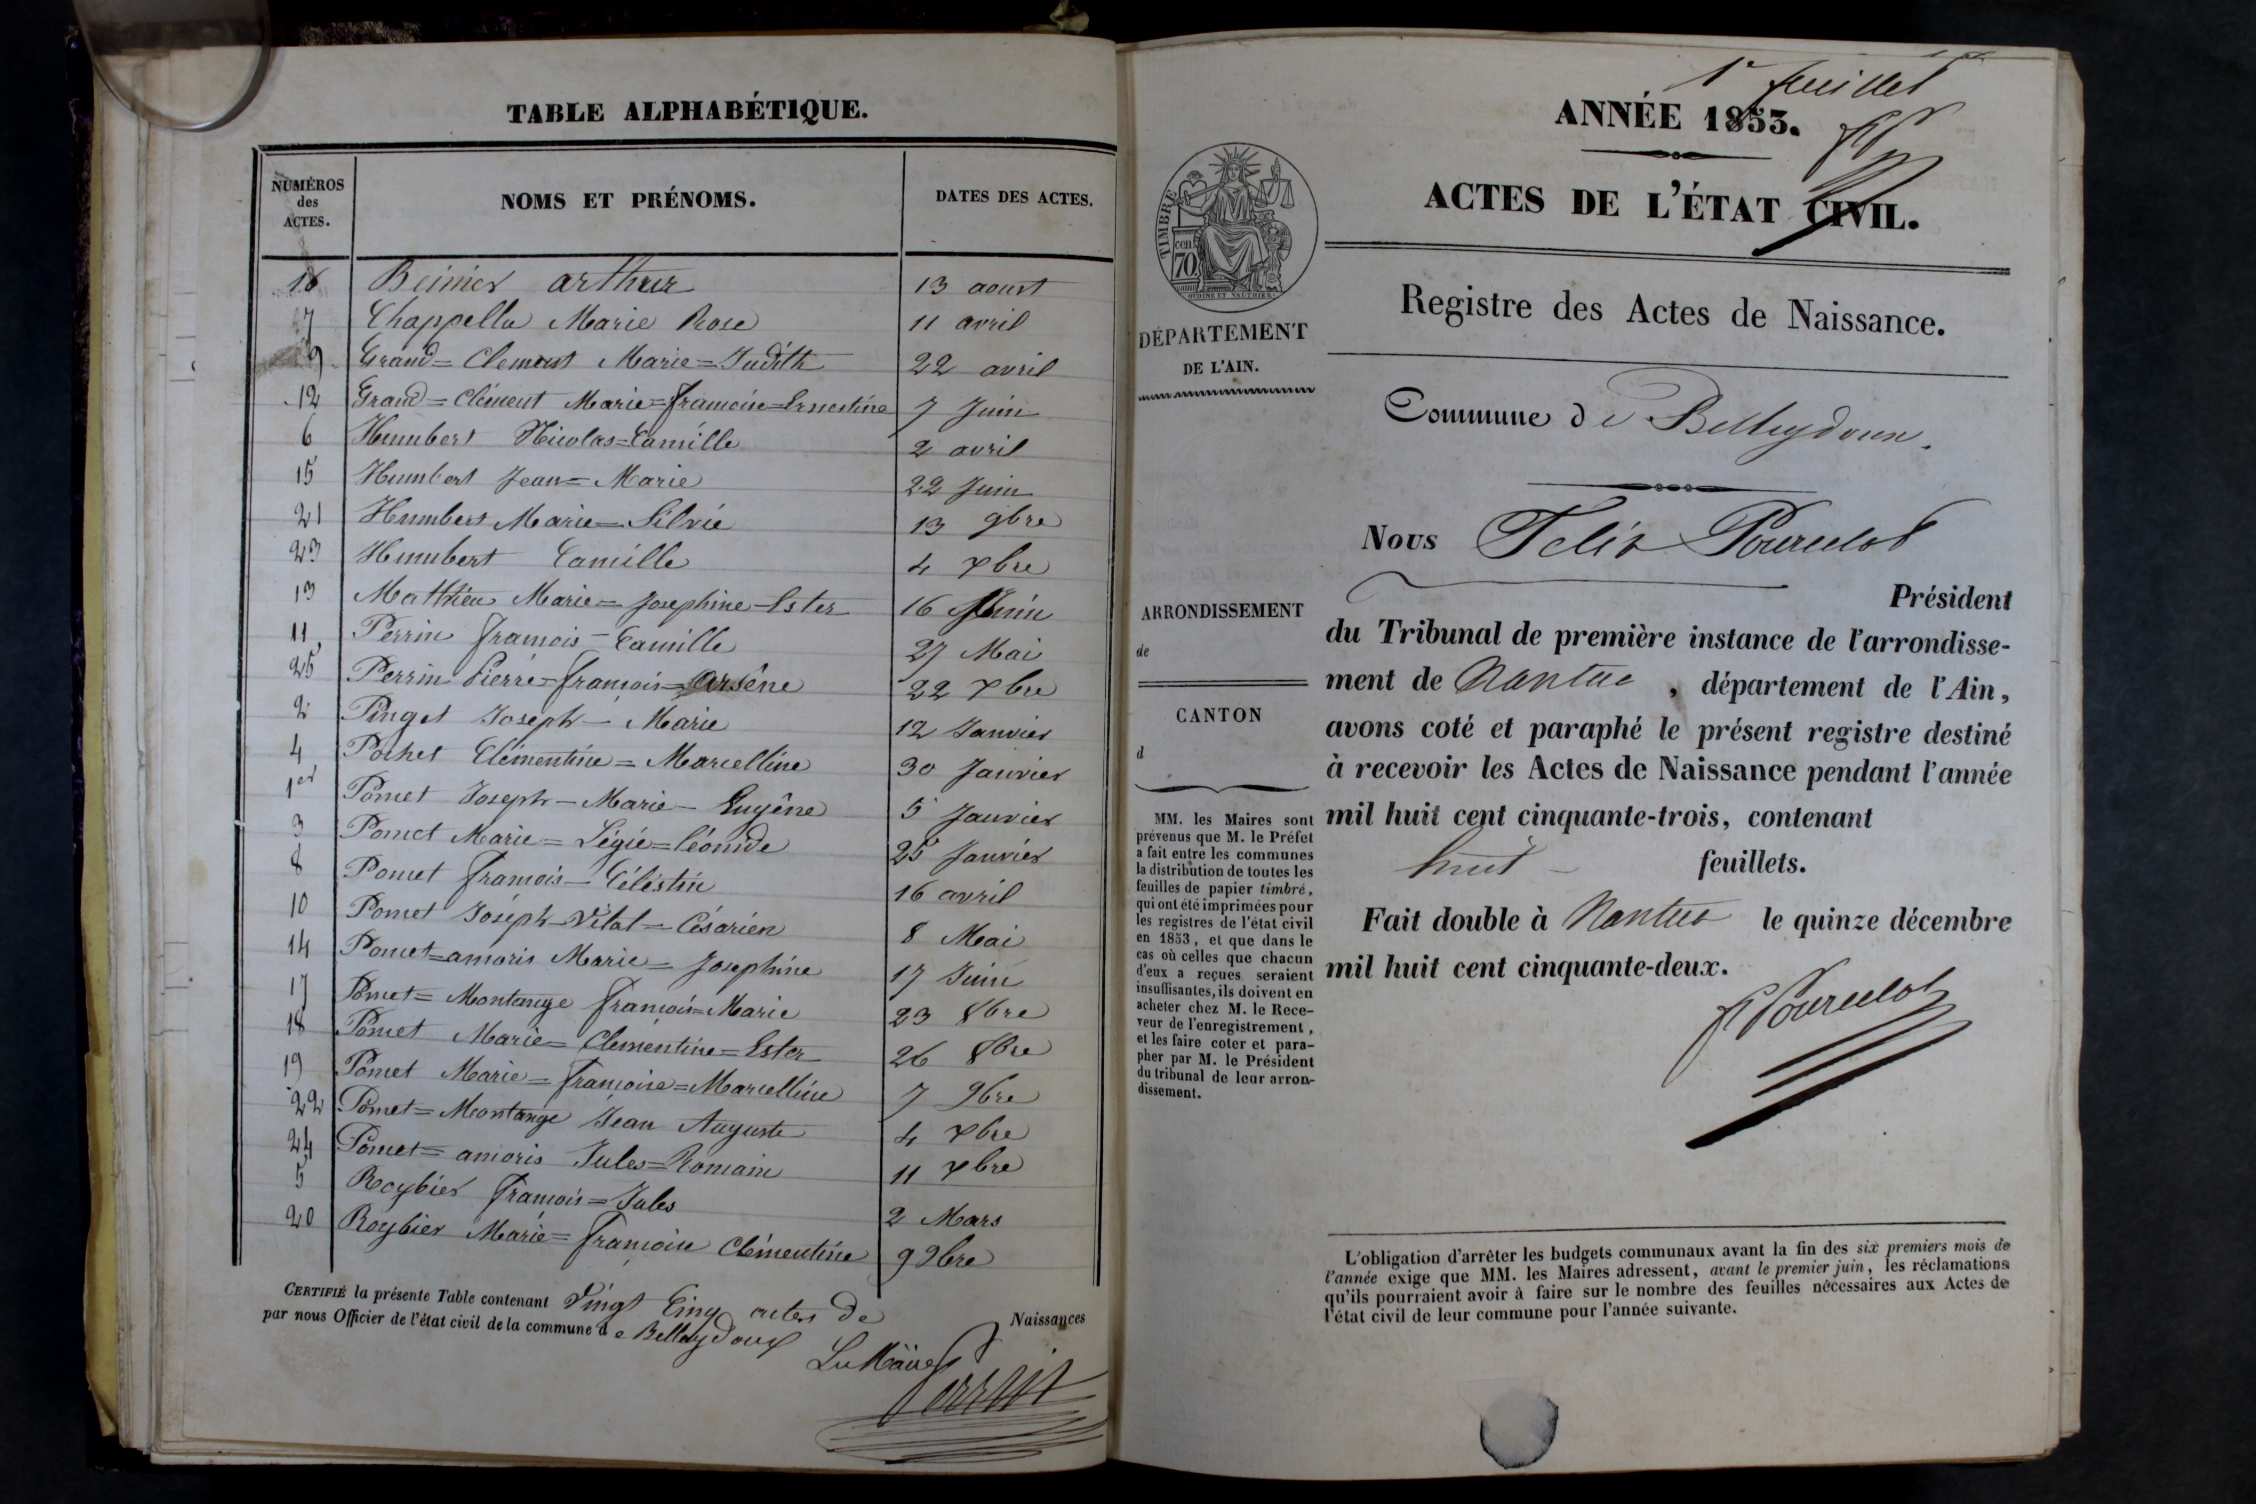 TABLE ALPHABÉTIQUE.
NUMÉROS des ACTES.
NOMS ET PRÉNOMS.
DATES DES ACTES.
16 Beinier arthur 13 aoust
7 Chappella Marie Rose 11 avril
9 Grand=Clement Marie=Judith 22 avril
12 Grand=Clément Marie=françoise=Ernestine 7 Juin
6 Humbert Nicolas=Camille 2 avril
15 Humbert Jean=Marie 22 Juin
21 Humbert Marie=Silvie 13 9bre
23 Humbert Camille 4 xbre
13 Matthieu Marie=Josephine=Ester 16 Juin
11 Perrin françois=Camille 27 Mai
25 Perrin Pierre=françois=Arsène 22 xbre
2 Pinget Joseph=Marie 12 Janvier
4 Pochet Clémentine=Marcelline 30 Janvier
1er Pomet Joseph=Marie=Eugêne 5 Janvier
3 Pomet Marie=Ligie=Léonide 25 Janvier
8 Pomet françois=Céléstin 16 avril
10 Pomet Joséph=Vital=Césarien 8 Mai
14 Pomet=amoris Marie=Josephine 17 Juin
17 Pomet=Montange françois=Marie 23 8bre
18 Pomet Marie=Clémentine=Ester 26 8bre
19 Pomet Marie=françoise=Marcelline 7 9bre
22 Pomet=Montange Jean Auguste 4 xbre
24 Pomet=amoris Jules=Romain 11 xbre
5 Roybier françois=Jules 2 Mars
20 Roybier Marie=françoise Clémentine 9 9bre
CERTIFIÉ la présente Table contenant Vingt Cinq actes de Naissances
par nous Officier de l'état civil de la commune de Belleydoux
Le Maire
Perrin
1er feuillet
ANNÉE 1853.
ACTES DE L'ÉTAT CIVIL.
TIMBRE
cen
70
OUDINE ET NAUTHIER
DÉPARTEMENT
DE L'AIN.
Registre des Actes de Naissance.
Commune de Belleydoux.
Nous Félix Pourcelot
Président
ARRONDISSEMENT
de
CANTON
d
du Tribunal de première instance de l'arrondisse-
ment de Nantua, département de l'Ain,
avons coté et paraphé le présent registre destiné
à recevoir les Actes de Naissance pendant l'année
mil huit cent cinquante-trois, contenant
huit feuillets.
Fait double à Nantua le quinze décembre
mil huit cent cinquante-deux.
F Pourcelot
MM. les Maires sont
prévenus que M. le Préfet
a fait entre les communes
la distribution de toutes les
feuilles de papier timbré,
qui ont été imprimées pour
les registres de l'état civil
en 1853, et que dans le
cas où celles que chacun
d'eux a reçues seraient
insuffisantes, ils doivent en
acheter chez M. le Rece-
veur de l'enregistrement,
et les faire coter et para-
pher par M. le Président
du tribunal de leur arron-
dissement.
L'obligation d'arrêter les budgets communaux avant la fin des six premiers mois de
l'année exige que MM. les Maires adressent, avant le premier juin, les réclamations
qu'ils pourraient avoir à faire sur le nombre des feuilles nécessaires aux Actes de
l'état civil de leur commune pour l'année suivante.